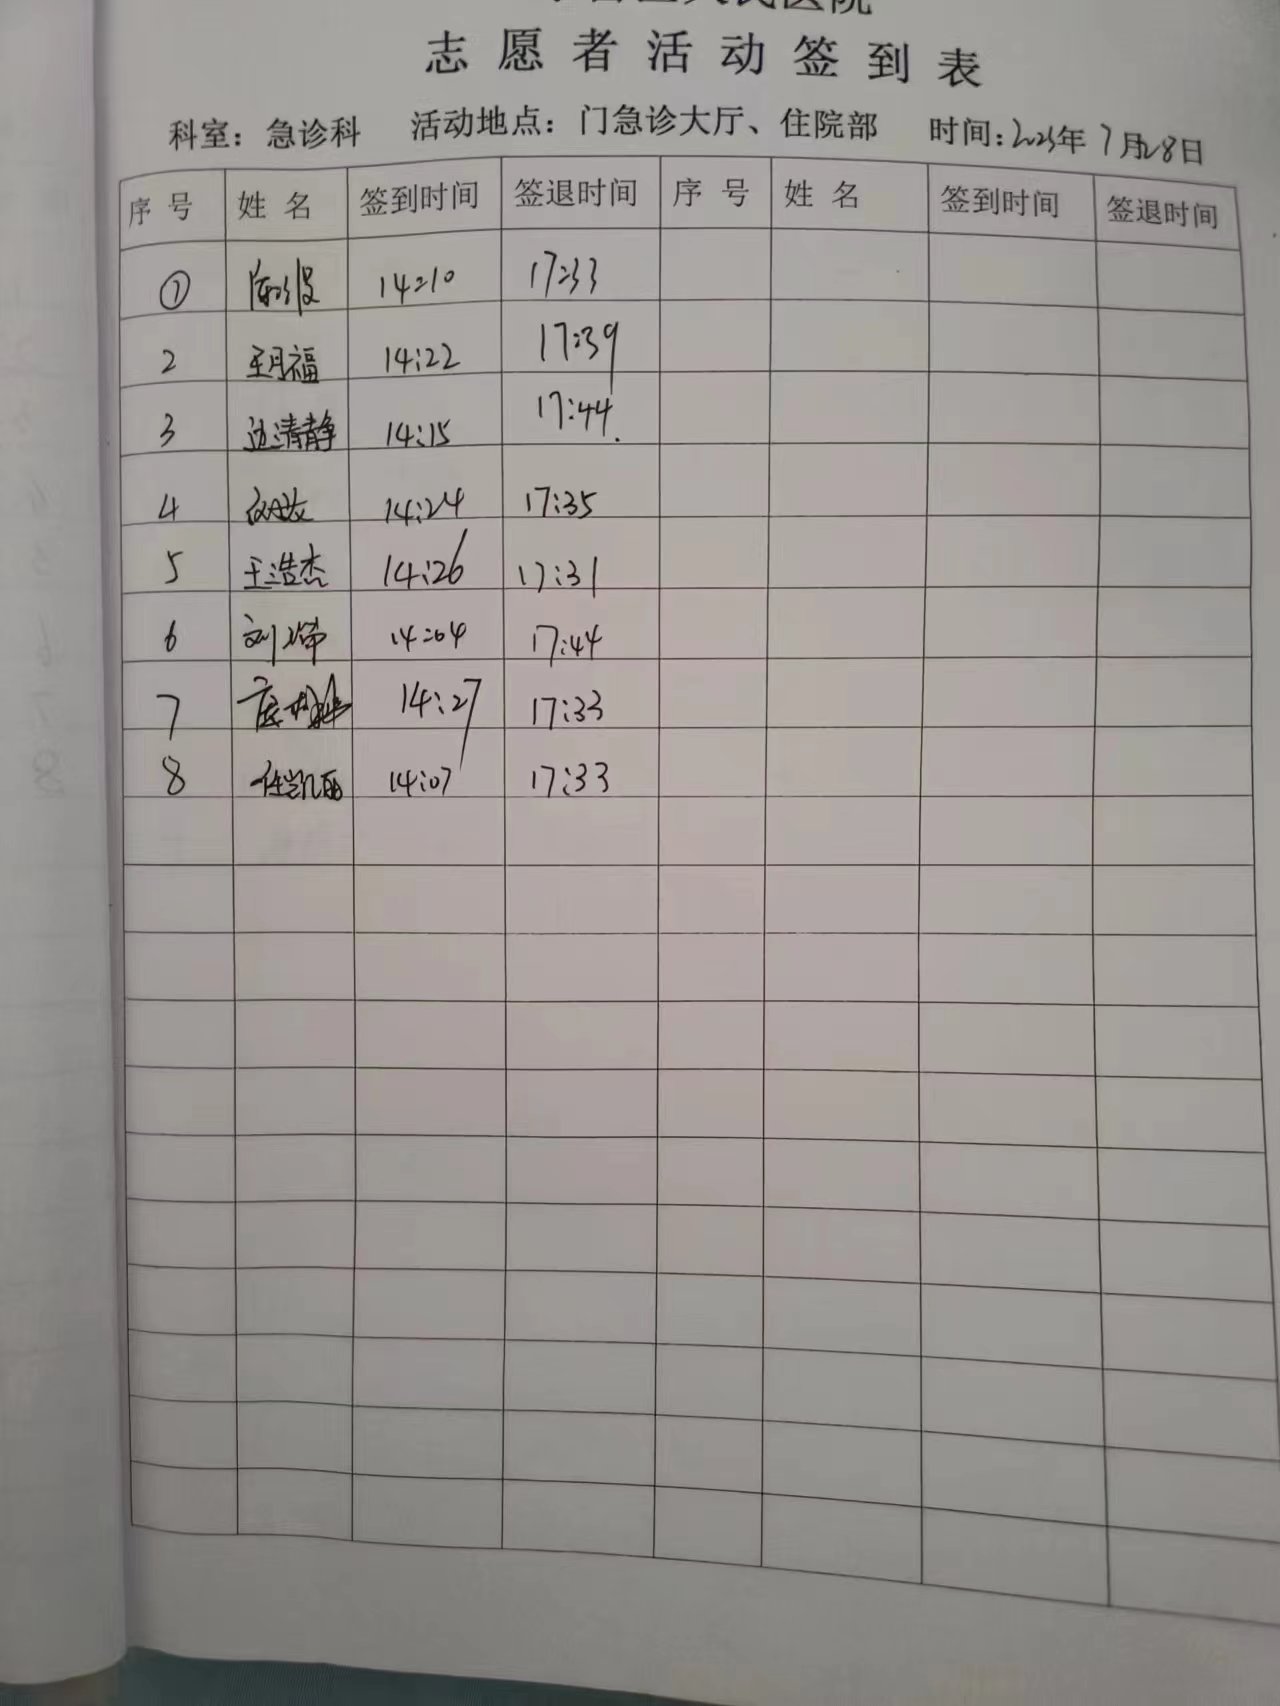 人民医院
志愿者活动签到表
科室：急诊科 活动地点：门急诊大厅、住院部 时间：2023年7月28日
序号 姓名 签到时间 签退时间 序号 姓名 签到时间 签退时间
① 14:10 17:33
2 王月福 14:22 17:39
3 边清静 14:15 17:44.
4 14:24 17:35
5 王浩杰 14:26 17:31
6 刘 14:04 17:44
7 14:27 17:33
8 任凯丽 14:07 17:33